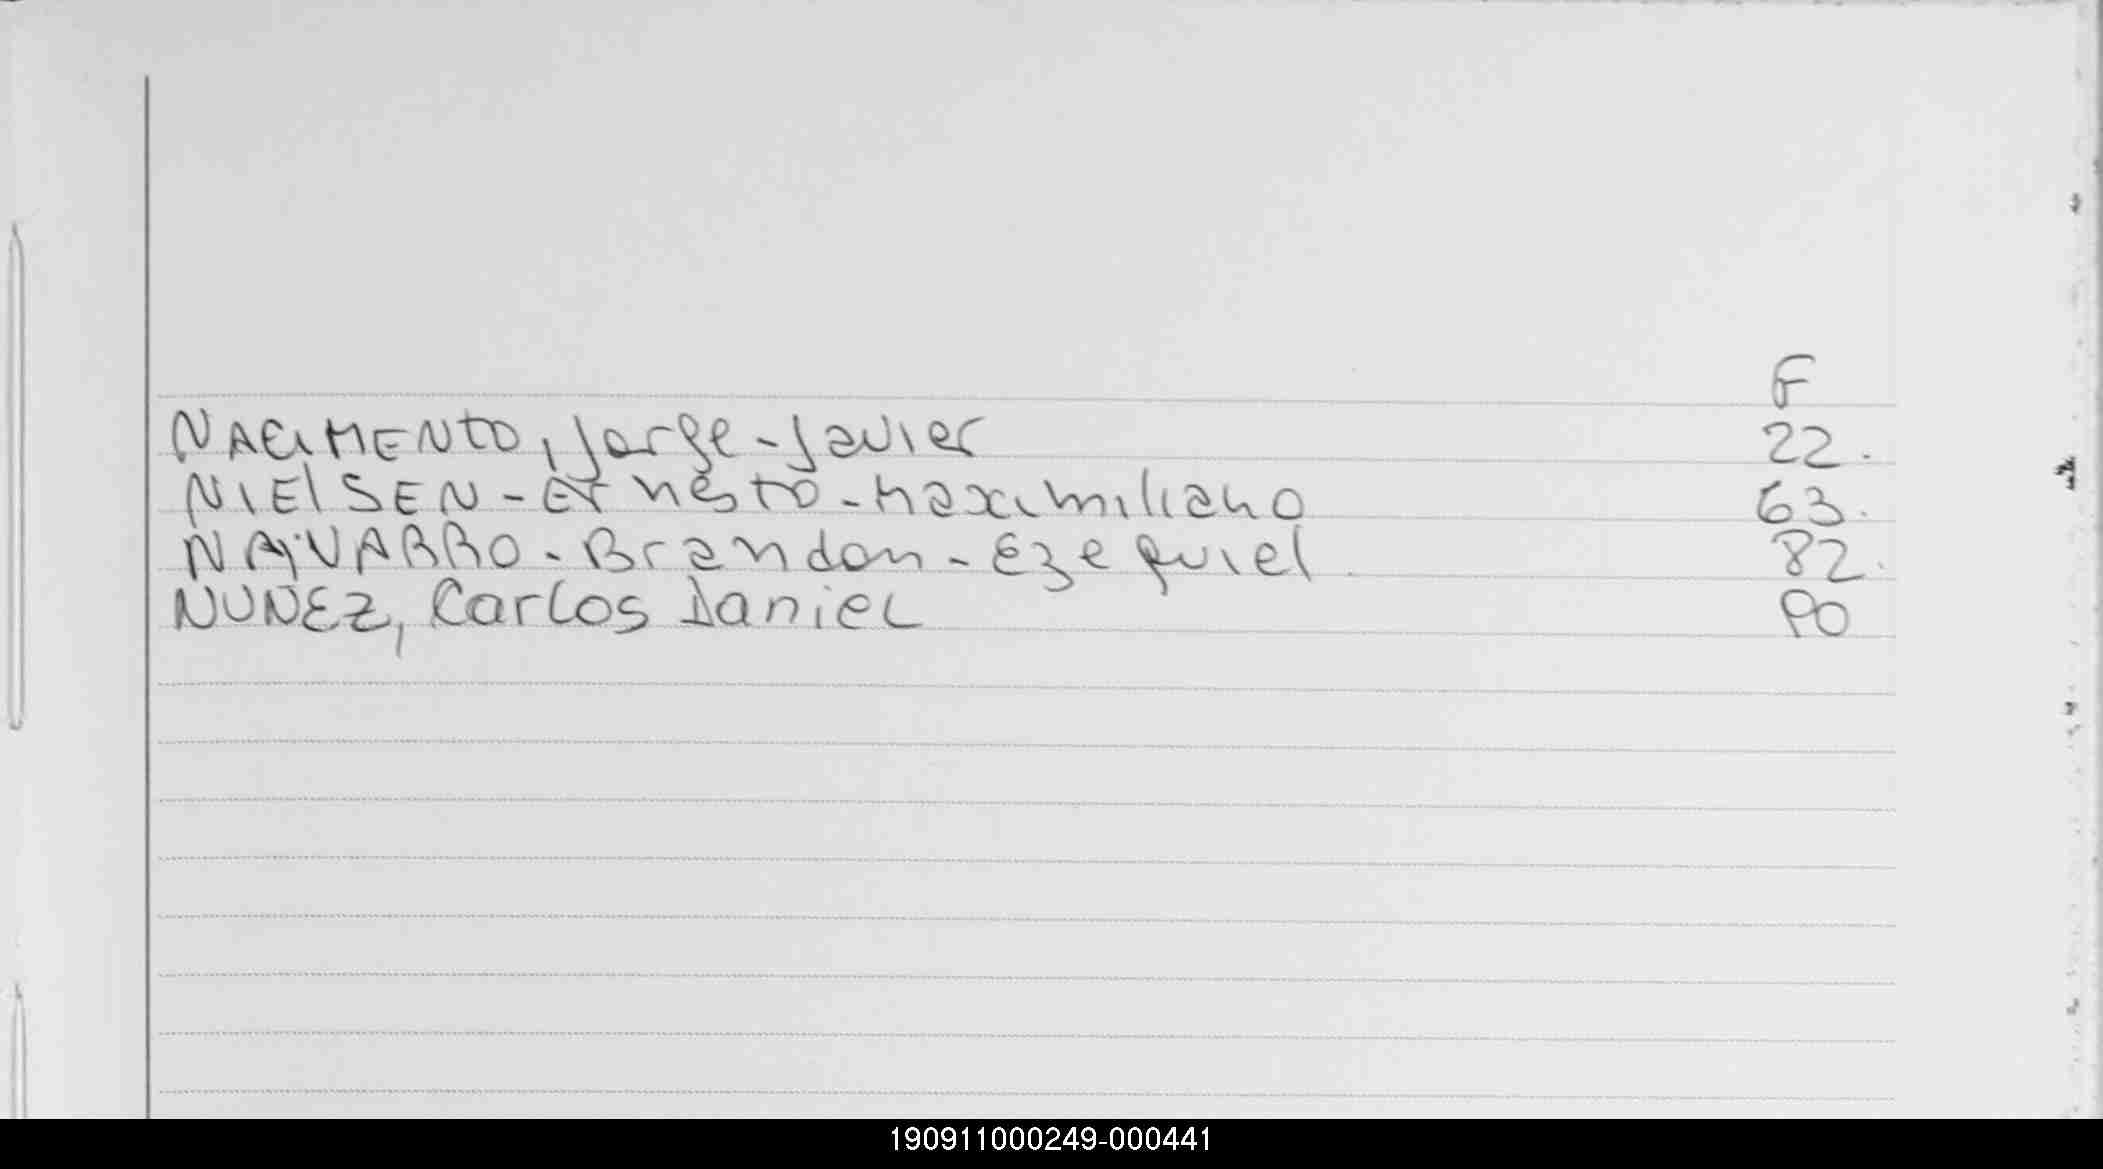 F
NACIMENTO, Jorge-Javier 22.
NIElSEN-Ernesto-Maximiliano 63.
NAVARRO-Brandon-Ezequiel 82.
NUNEZ, Carlos Daniel 90
190911000249-000441